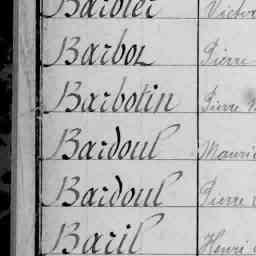 Barbier Victor
Barboz Pierre
Barbotin Pierre
Bardoul Mauric
Bardoul Pierre
Baril Henri